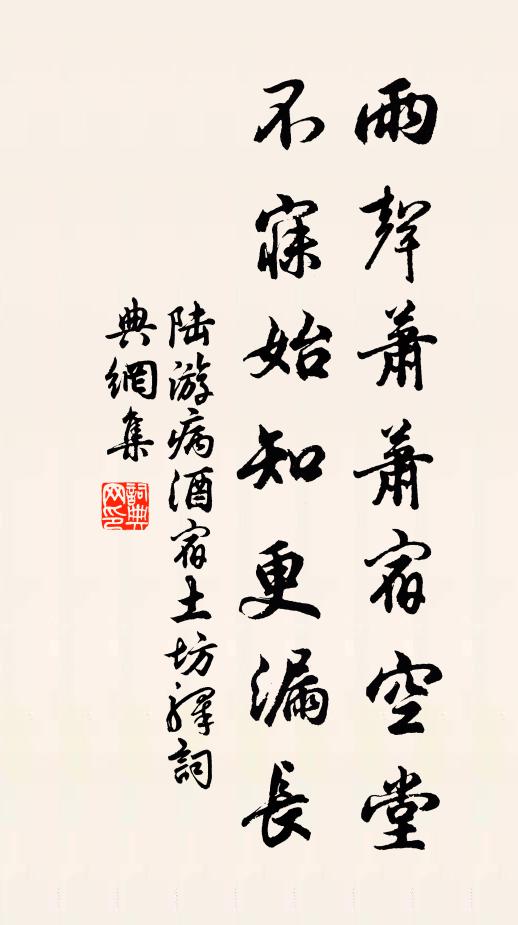 雨聲蕭蕭宿空堂
不寐始知更漏長
陸游病酒宿土坊驛詞
典網集
詞典網印